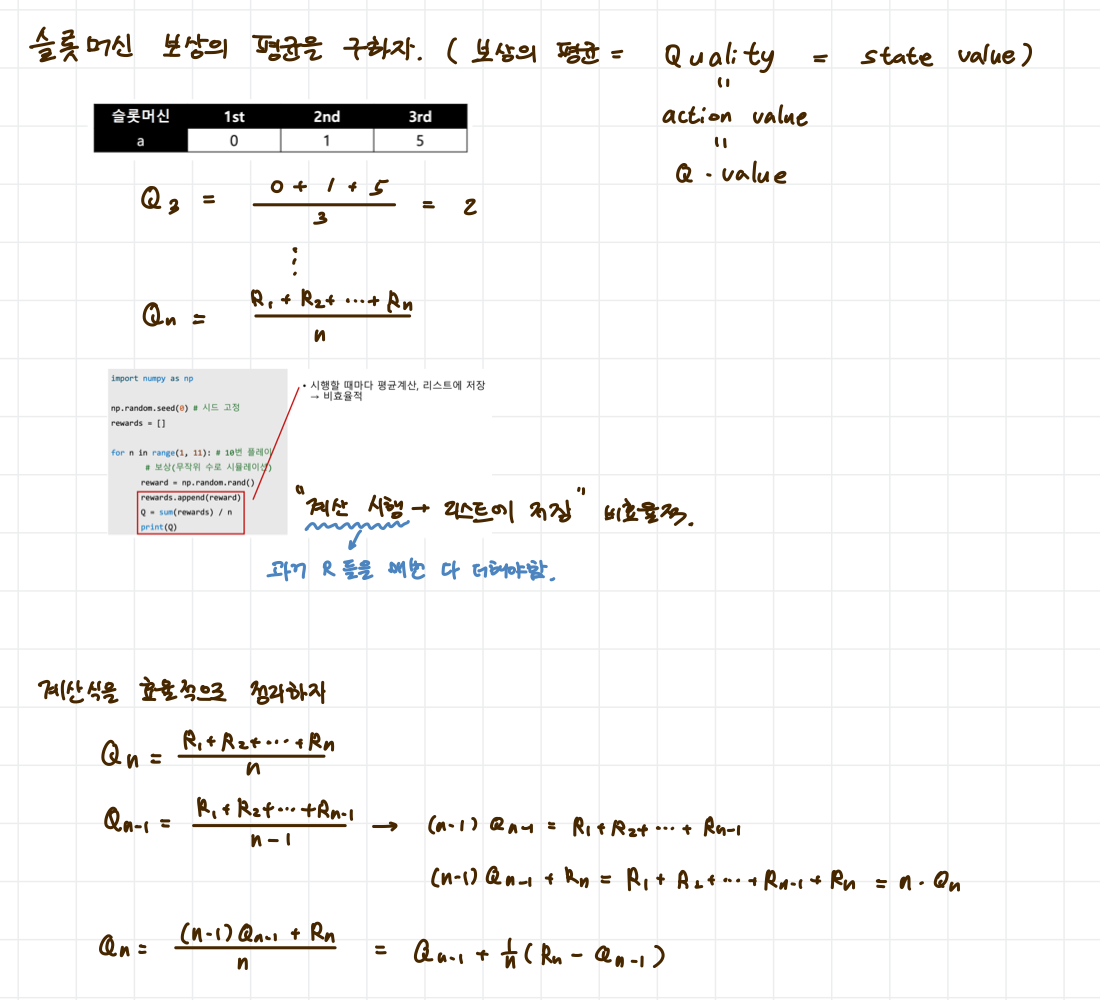 슬롯머신 보상의 평균을 구하자. ( 보상의 평균 = Quality = state value )
"
action value
"
Q-value
슬롯머신 1st 2nd 3rd
a 0 1 5
Q₃ = (0 + 1 + 5) / 3 = 2
⋮
Qₙ = (R₁ + R₂ + ⋯ + Rₙ) / n
import numpy as np
np.random.seed(0) # 시드 고정
rewards = []
for n in range(1, 11): # 10번 플레이
# 보상(무작위 수로 시뮬레이션)
reward = np.random.rand()
rewards.append(reward)
Q = sum(rewards) / n
print(Q)
• 시행할 때마다 평균계산, 리스트에 저장
→ 비효율적
"계산 시행 → 리스트에 저장" 비효율적.
과거 R 들을 매번 다 더해야함.
계산식을 효율적으로 정리하자
Qₙ = (R₁ + R₂ + ⋯ + Rₙ) / n
Qₙ₋₁ = (R₁ + R₂ + ⋯ + Rₙ₋₁) / (n-1) → (n-1) Qₙ₋₁ = R₁ + R₂ + ⋯ + Rₙ₋₁
(n-1) Qₙ₋₁ + Rₙ = R₁ + R₂ + ⋯ + Rₙ₋₁ + Rₙ = n · Qₙ
Qₙ = ((n-1) Qₙ₋₁ + Rₙ) / n = Qₙ₋₁ + 1/n ( Rₙ - Qₙ₋₁ )